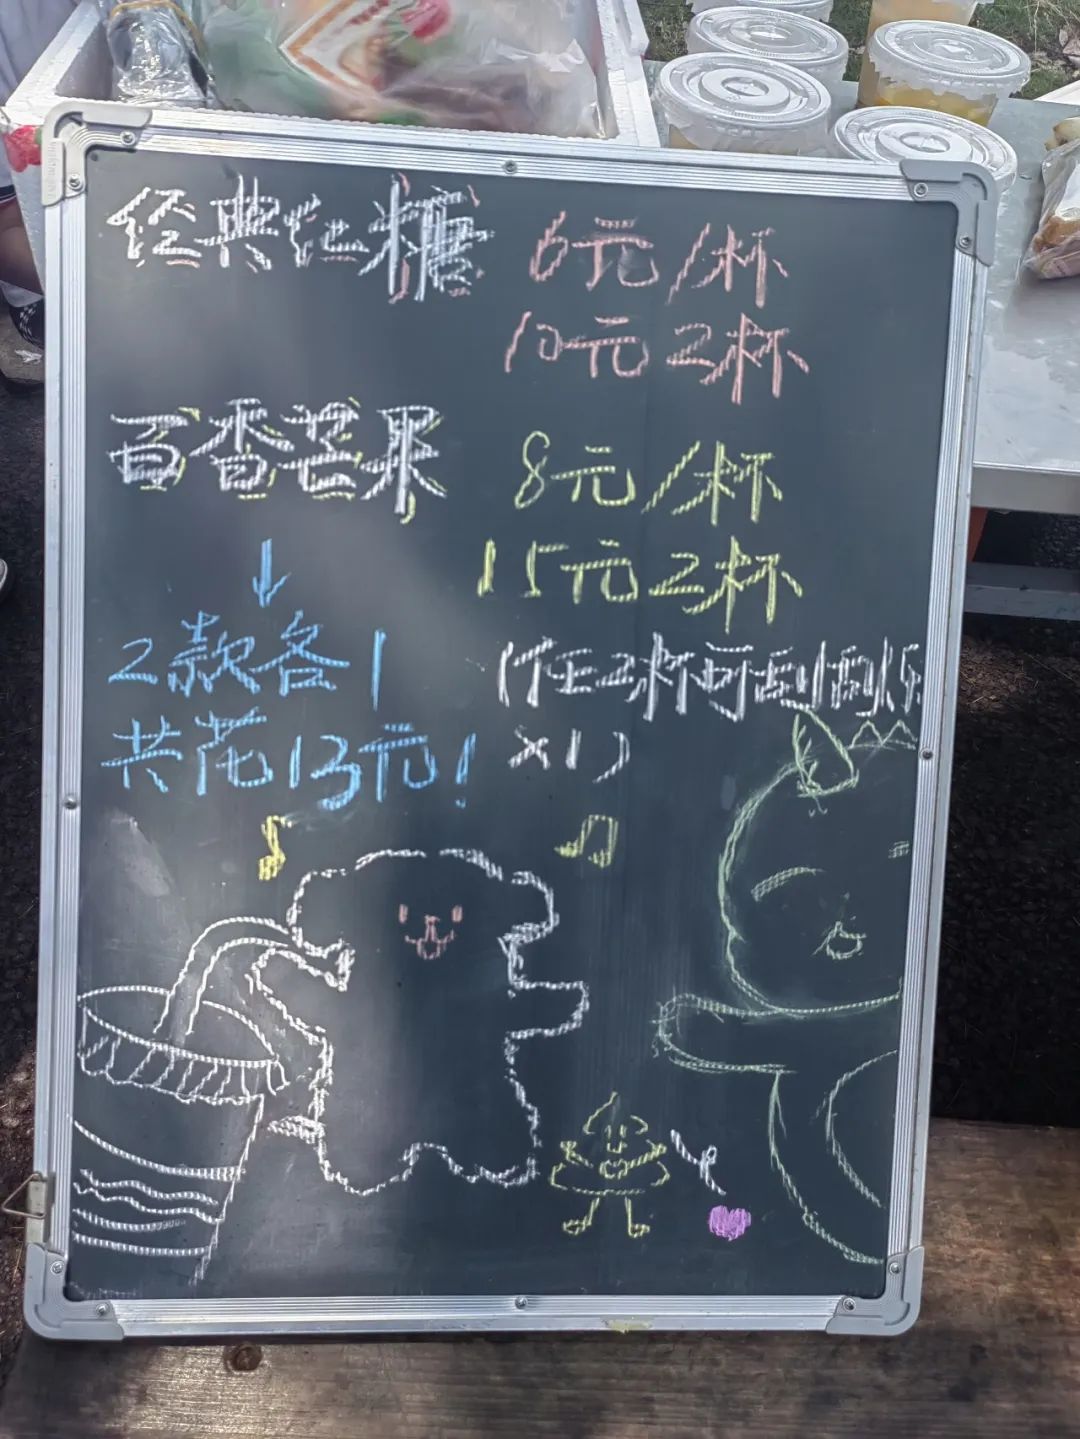 经典红糖 6元/杯
10元2杯
百香芒果 8元/杯
15元2杯
↓
2款各1
共花13元!
(任2杯可刮刮乐
×1)